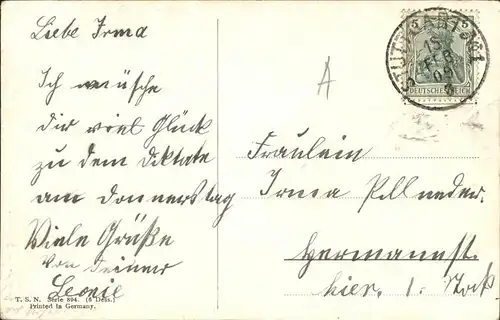 Liebe Irma
Ich wüsche
dir viel Glück
zu dem Diktate
am Donnerstag
Viele Grüße
von Deiner
Leonie
T. S. N. Serie 894. (6 Dess.)
Printed in Germany.
A
STUTTGART
15
FEB
DEUTSCHES REICH
Fräulein
Irma
Hermannst.
hier, 1. Stock